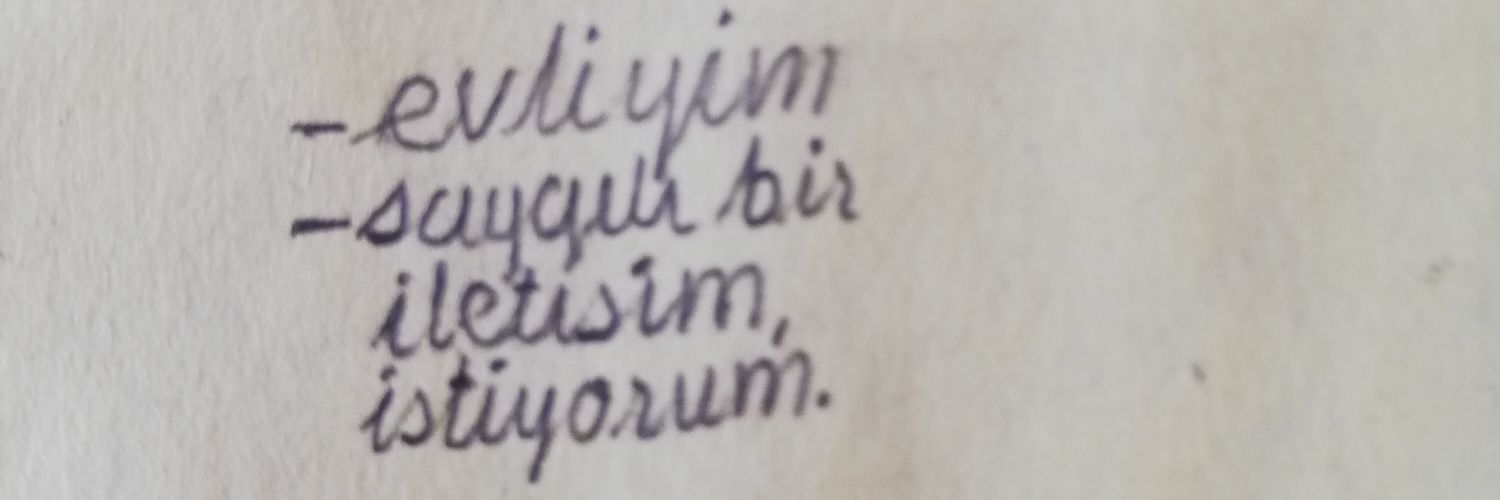 -evliyim
-saygılı bir
iletisim,
istiyorum.